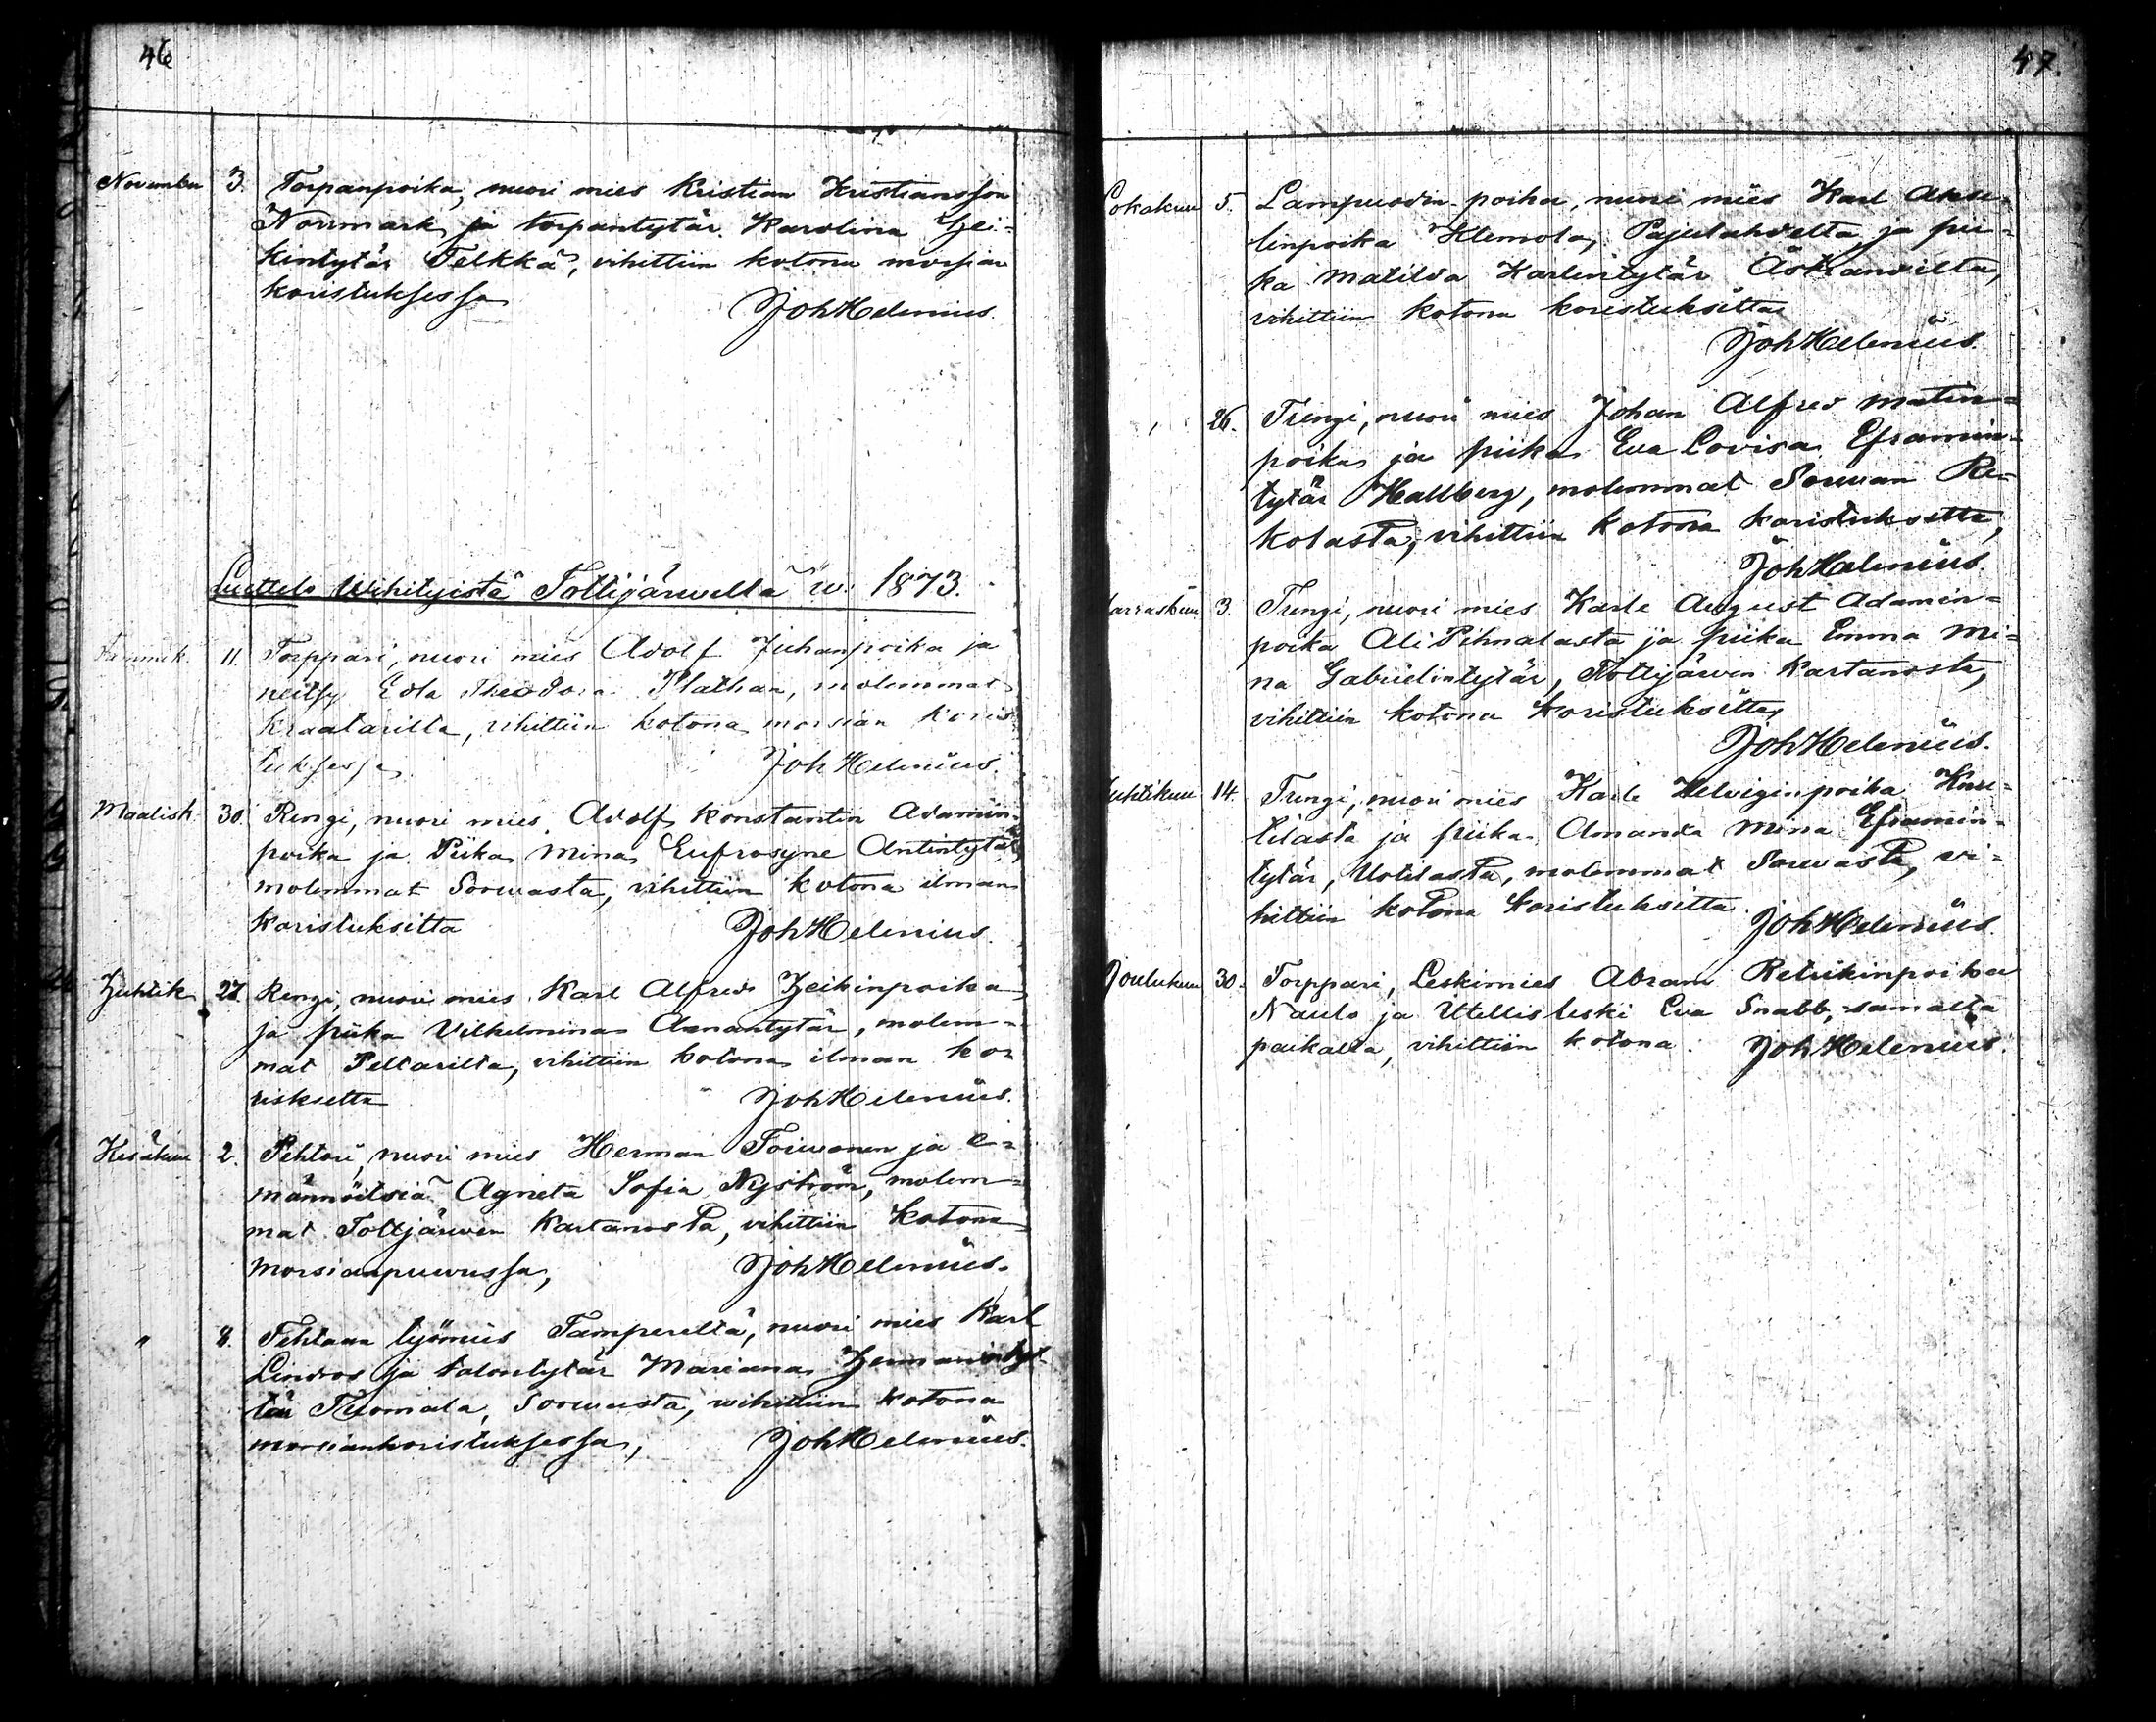 46
November 3. Torpanpoika, nuori mies Kristian Kristiansson
Norrmark ja torpantytär Karolina Hei=
kintytär Telkkä, vihittiin kotona morsian
koristuksessa JohHelenius.
Luettelo Wihityistä Tottijärweltä w. 1873.
Tammik. 11. Torppari, nuori mies Adolf Juhanpoika ja
neitsy Edla Theodora Plathan, molemmat
kraatarilta, vihittiin kotona morsian koris
tuksessa JohHelenius.
Maalisk. 30. Rengi, nuori mies Adolf Konstantin Adamin=
poika ja Piika Mina Eufrosyne Antintytär,
molemmat Sorwasta, vihittiin kotona ilman
koristuksitta JohHelenius.
Huhtik. 27. Rengi, nuori mies Karl Alfred Heikinpoika
ja piika Vilhelmina Amantytär, molem=
mat Peltarilta, vihittiin kotona ilman ko=
risksetta JohHelenius.
Kesäkuu 2. Pehtori, nuori mies Herman Toiwonen ja e=
männöitsiä Agneta Sofia Nyström, molem=
mat Tottjärwen Kartanosta, vihittiin kotona
morsianpuwussa, JohHelenius.
" 8. Tehtaan työmies Tampereelta, nuori mies Karl
Lindros ja talontytär Mariana Hermanintyt
tär Tuomala, Sorwasta, wihittiin kotona
morsiankoristuksessa, JohHelenius.
47.
Lokakuu 5. Lampuodin-poika, nuori mies Karl Akse=
linpoika Klemola, Pajulahdelta ja pii=
ka Matilda Karlintytär Äskandilta,
vihittiin kotona koristuksitta
JohHelenius.
26. Trengi, nuori mies Johan Alfred Matin=
poika ja piika Eva Lovisa Eframin=
tytär Hallberg, molemmat Sorwan Re=
kolasta, vihittiin kotona koristuksitta,
JohHelenius.
Marraskuu 3. Trengi, nuori mies Karle August Adamin=
poika Ali Pihnalasta ja piika Emma Mi=
na Gabrielintytär, Tottijärwen Kartanosta,
vihittiin kotona koristuksitta
JohHelenius.
Huhtikuu 14. Trengi, nuori mies Karle Helviginpoika Knu=
tilasta ja piika Amanda Mina Eframin=
tytär, Uotilasta, molemmat Sorwasta, vi=
hittiin kotona koristuksitta. JohHelenius.
Joulukuu 30. Torppari, Leskimies Abram Retrikinpoika
Naulo ja Itellisleski Eva Snabb, samalta
paikalta, vihittiin kotona. JohHelenius.